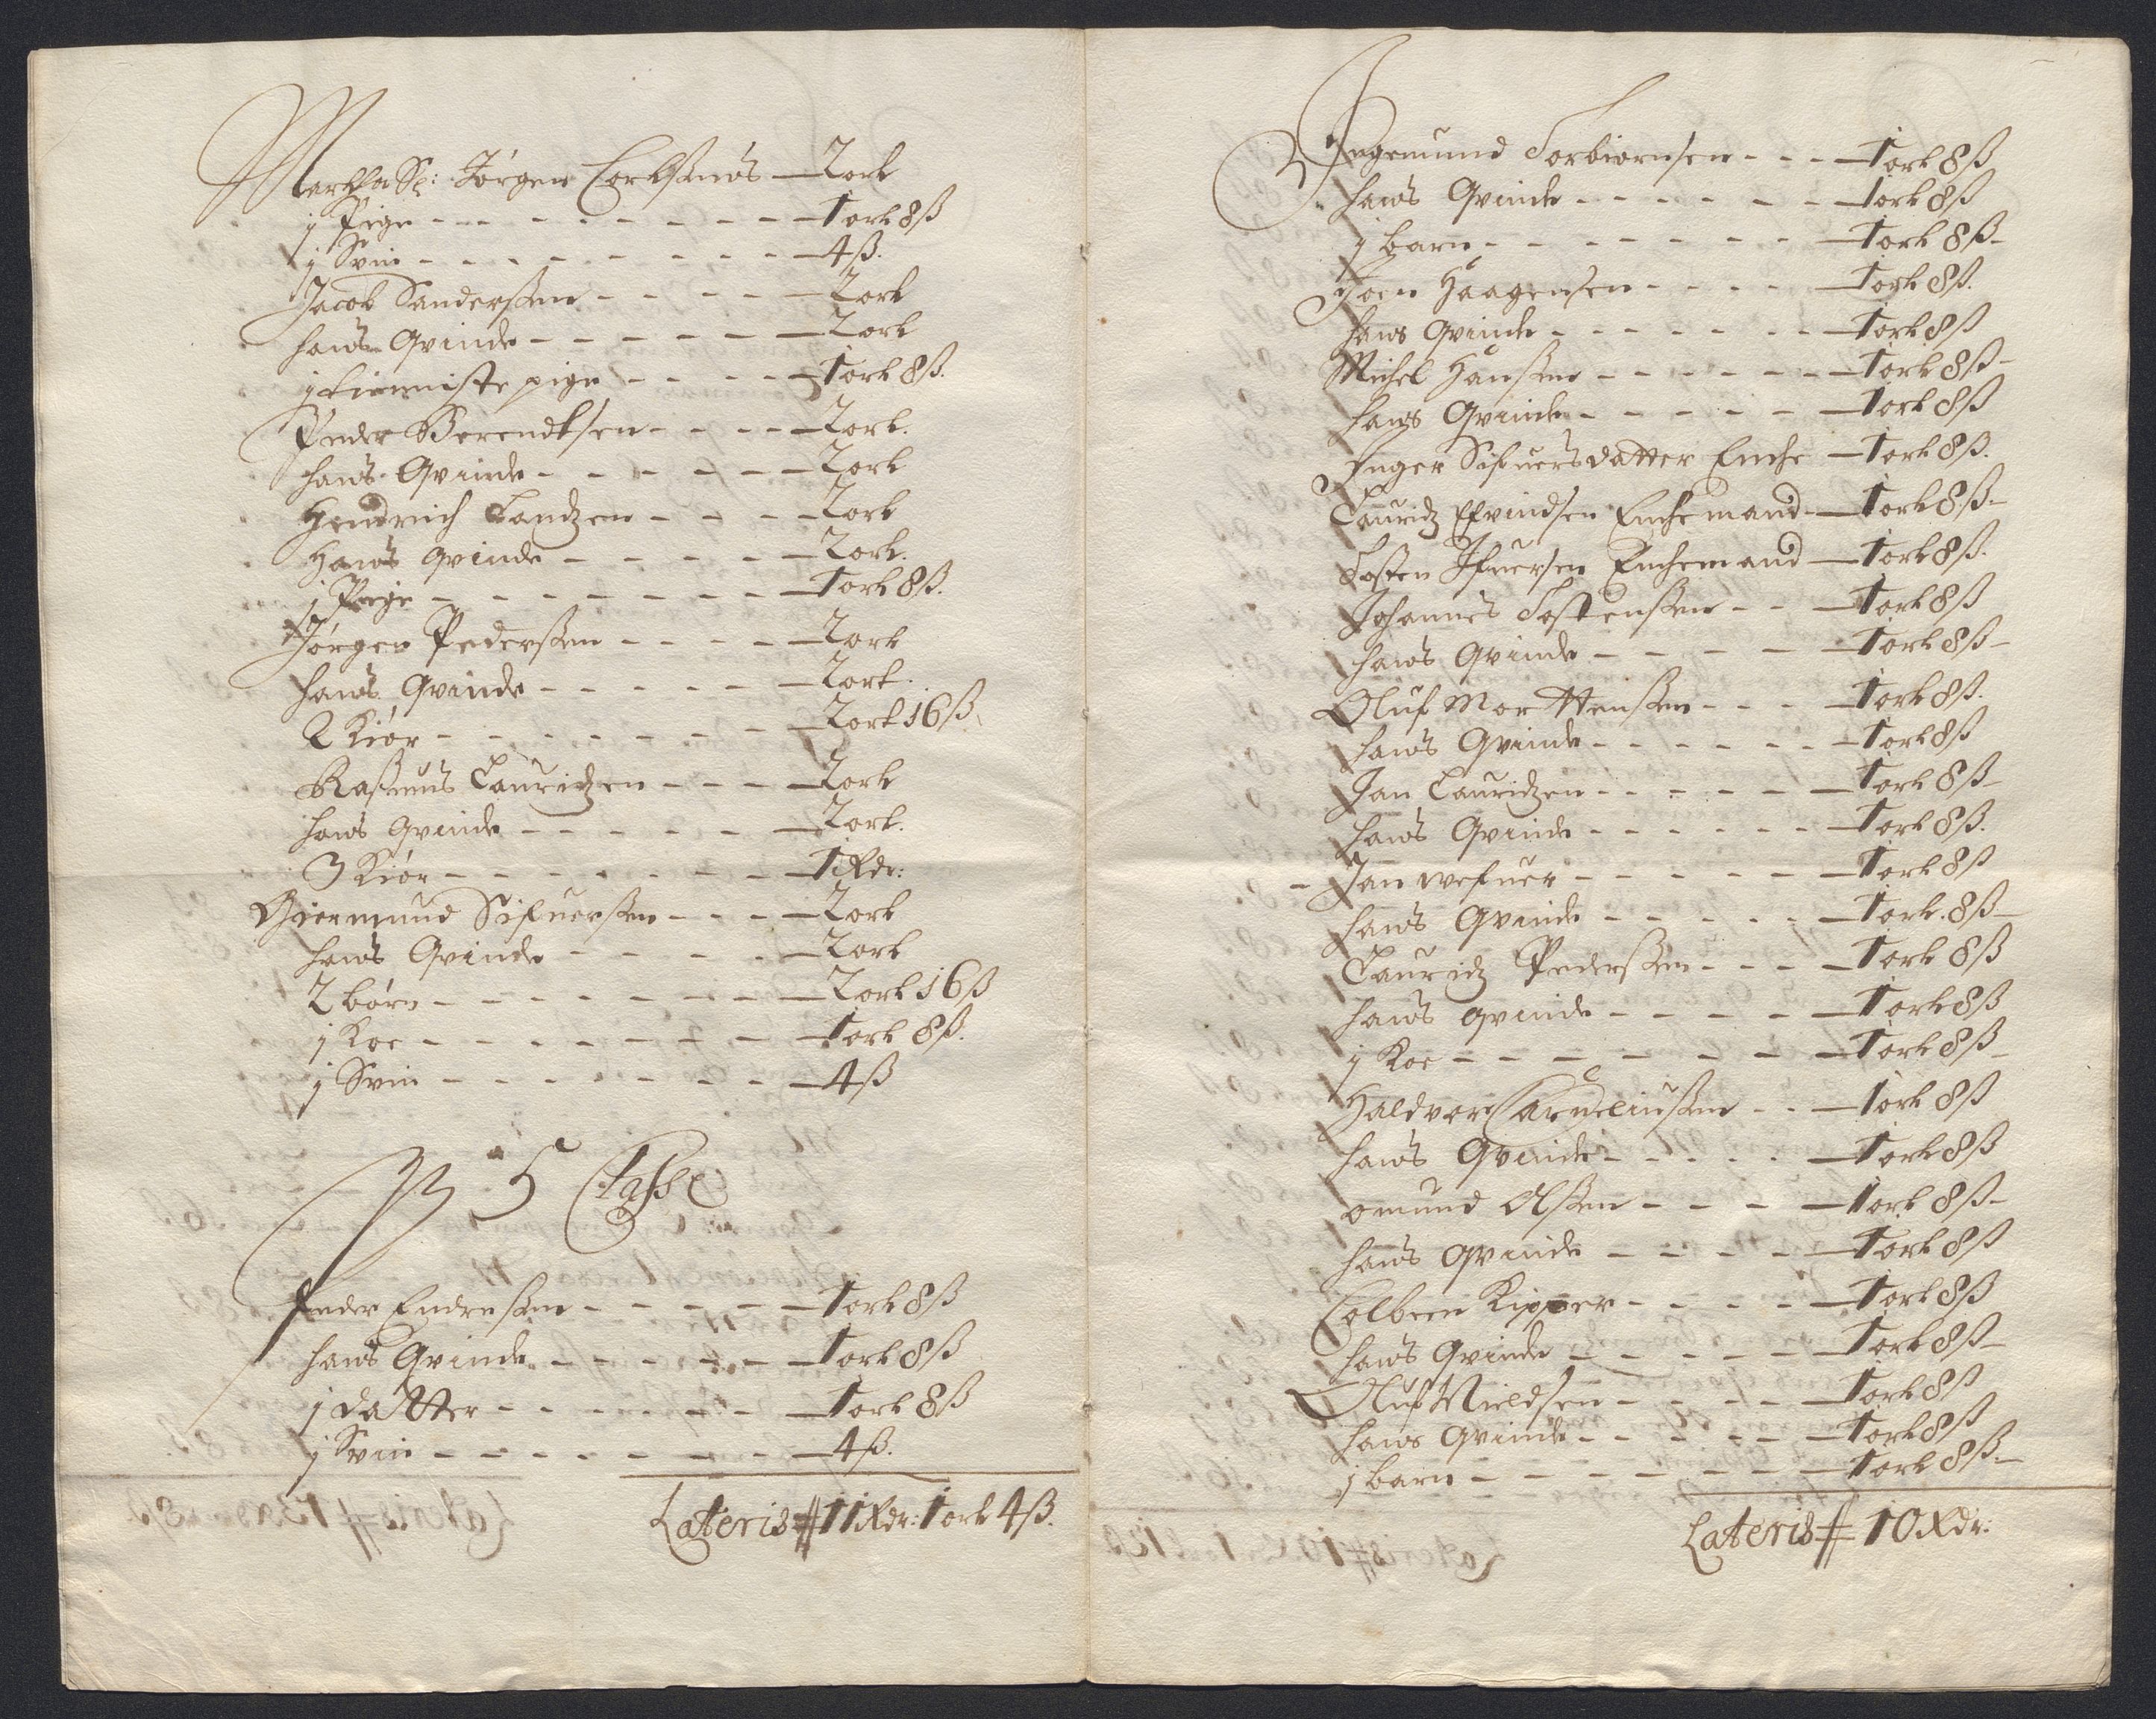 Marthe Sl: Jørgen Corltsens — 2 ort
1 Pige — 1 ort 8 ß
1 Svin — 4 ß.
Jacob Sanderssen — 2 ort
hans Qvinde — 2 ort
1 tienniste pige — 1 ort 8 ß.
Peder Berendtsen — 2 ort.
hans Qvinde — 2 ort
Hendrich Landzen — 2 ort
Hans qvinde — 2 ort.
1 Pige — 1 ort 8 ß.
Jørgen Pederssen — 2 ort
hans Qvinde — 2 ort.
2 Kiør — 2 ort 16 ß
Rasmus Lauridzen — 2 ort
hans qvinde — 2 ort.
3 Kiør — 1 Rdr:
Giermund Sifuerssen — 2 ort
hans Qvinde — 2 ort
2 børn — 2 ort 16 ß
1 Koe — 1 ort 8 ß.
1 Svin — 4 ß
5 Classe
Peder Endressen — 1 ort 8 ß
hans Qvinde — 1 ort 8 ß
1 datter — 1 ort 8 ß
1 Svin — 4 ß.
Lateris # 11 Rdr: 1 ort 4 ß.
Ingemund Torbiørnsen — 1 ort 8 ß
hans Qvinde — 1 ort 8 ß
1 barn — 1 ort 8 ß
Joen Haagensen — 1 ort 8 ß.
hans Qvinde — 1 ort 8 ß
Michel Hanssen — 1 ort 8 ß
hans Qvinde — 1 ort 8 ß
Inger Sifuersdatter Enche — 1 ort 8 ß.
Lauridz Efvindsen Enchemand — 1 ort 8 ß
Tosten Ifuersen Enchemand — 1 ort 8 ß.
Johannes Tostenssen — 1 ort 8 ß
hans Qvinde — 1 ort 8 ß
Oluf Morttenssen — 1 ort 8 ß.
hans Qvinde — 1 ort 8 ß
Jan Lauridzen — 1 ort 8 ß
hans Qvinde — 1 ort 8 ß.
Jan wefuer — 1 ort 8 ß
hans Qvinde — 1 ort. 8 ß
Lauridz Pederssen — 1 ort 8 ß
hans qvinde — 1 ort 8 ß
1 Koe — 1 ort 8 ß
Haldvor Carneliussen — 1 ort 8 ß
hans Qvinde — 1 ort 8 ß
omund Olssen — 1 ort 8 ß
hans qvinde — 1 ort 8 ß
Colbeen Kipper — 1 ort 8 ß
hans Qvinde — 1 ort 8 ß
Oluf Nieldsen — 1 ort 8 ß
hans Qvinde — 1 ort 8 ß
1 barn — 1 ort 8 ß.
Lateris # 10 Rdr: